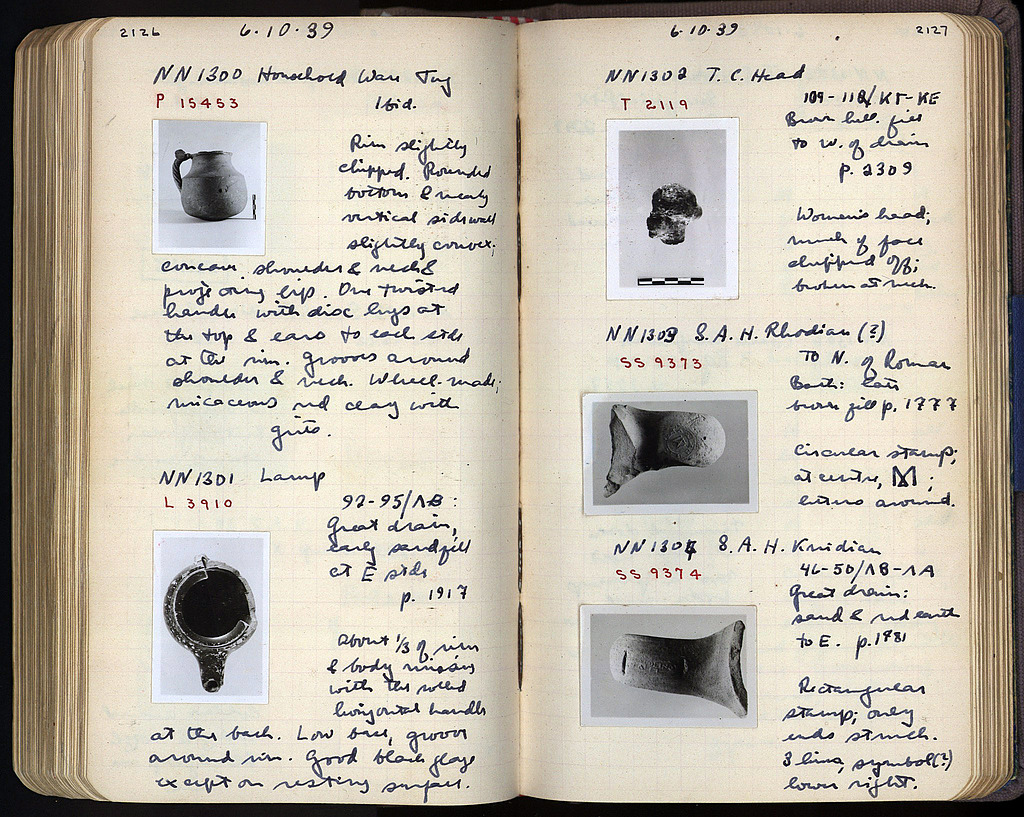 2126
6·10·39
NN1300 Household Ware Jug
P 15453
Ibid.
Rim slightly
chipped. Rounded
bottom & nearly
vertical sidewall
slightly convex;
concave shoulder & neck &
projecting lip. One twisted
handle with disc lugs at
the top & ears to each side
at the rim. Grooves around
shoulder & neck. Wheel-made;
micaceous red clay with
grits.
NN1301 Lamp
L 3910
92-95/ΛΒ:
Great drain,
early sand fill
at E side
p. 1917
About 1/3 of rim
& body missing
with the
horizontal handle
at the back. Low base, groove
around rim. Good black glaze
except on resting surface.
6·10·39
2127
NN1302 T.C. Head
T 2119
109-112/ΚΤ-ΚΕ
Brown hell. fill
to W. of drain
p. 2309
Woman's head;
much of face
chipped off;
broken at neck.
NN1303 S.A.H. Rhodian (?)
SS 9373
To N. of Roman
Bath: late
brown fill p. 1777
Circular stamp;
at centre, ;
letters around.
NN1304 S.A.H. Knidian
SS 9374
46-50/ΛΒ-ΛΑ
Great drain:
sand & red earth
to E. p. 1981
Rectangular
stamp; only
ends struck.
3 lines, symbol(?)
lower right.